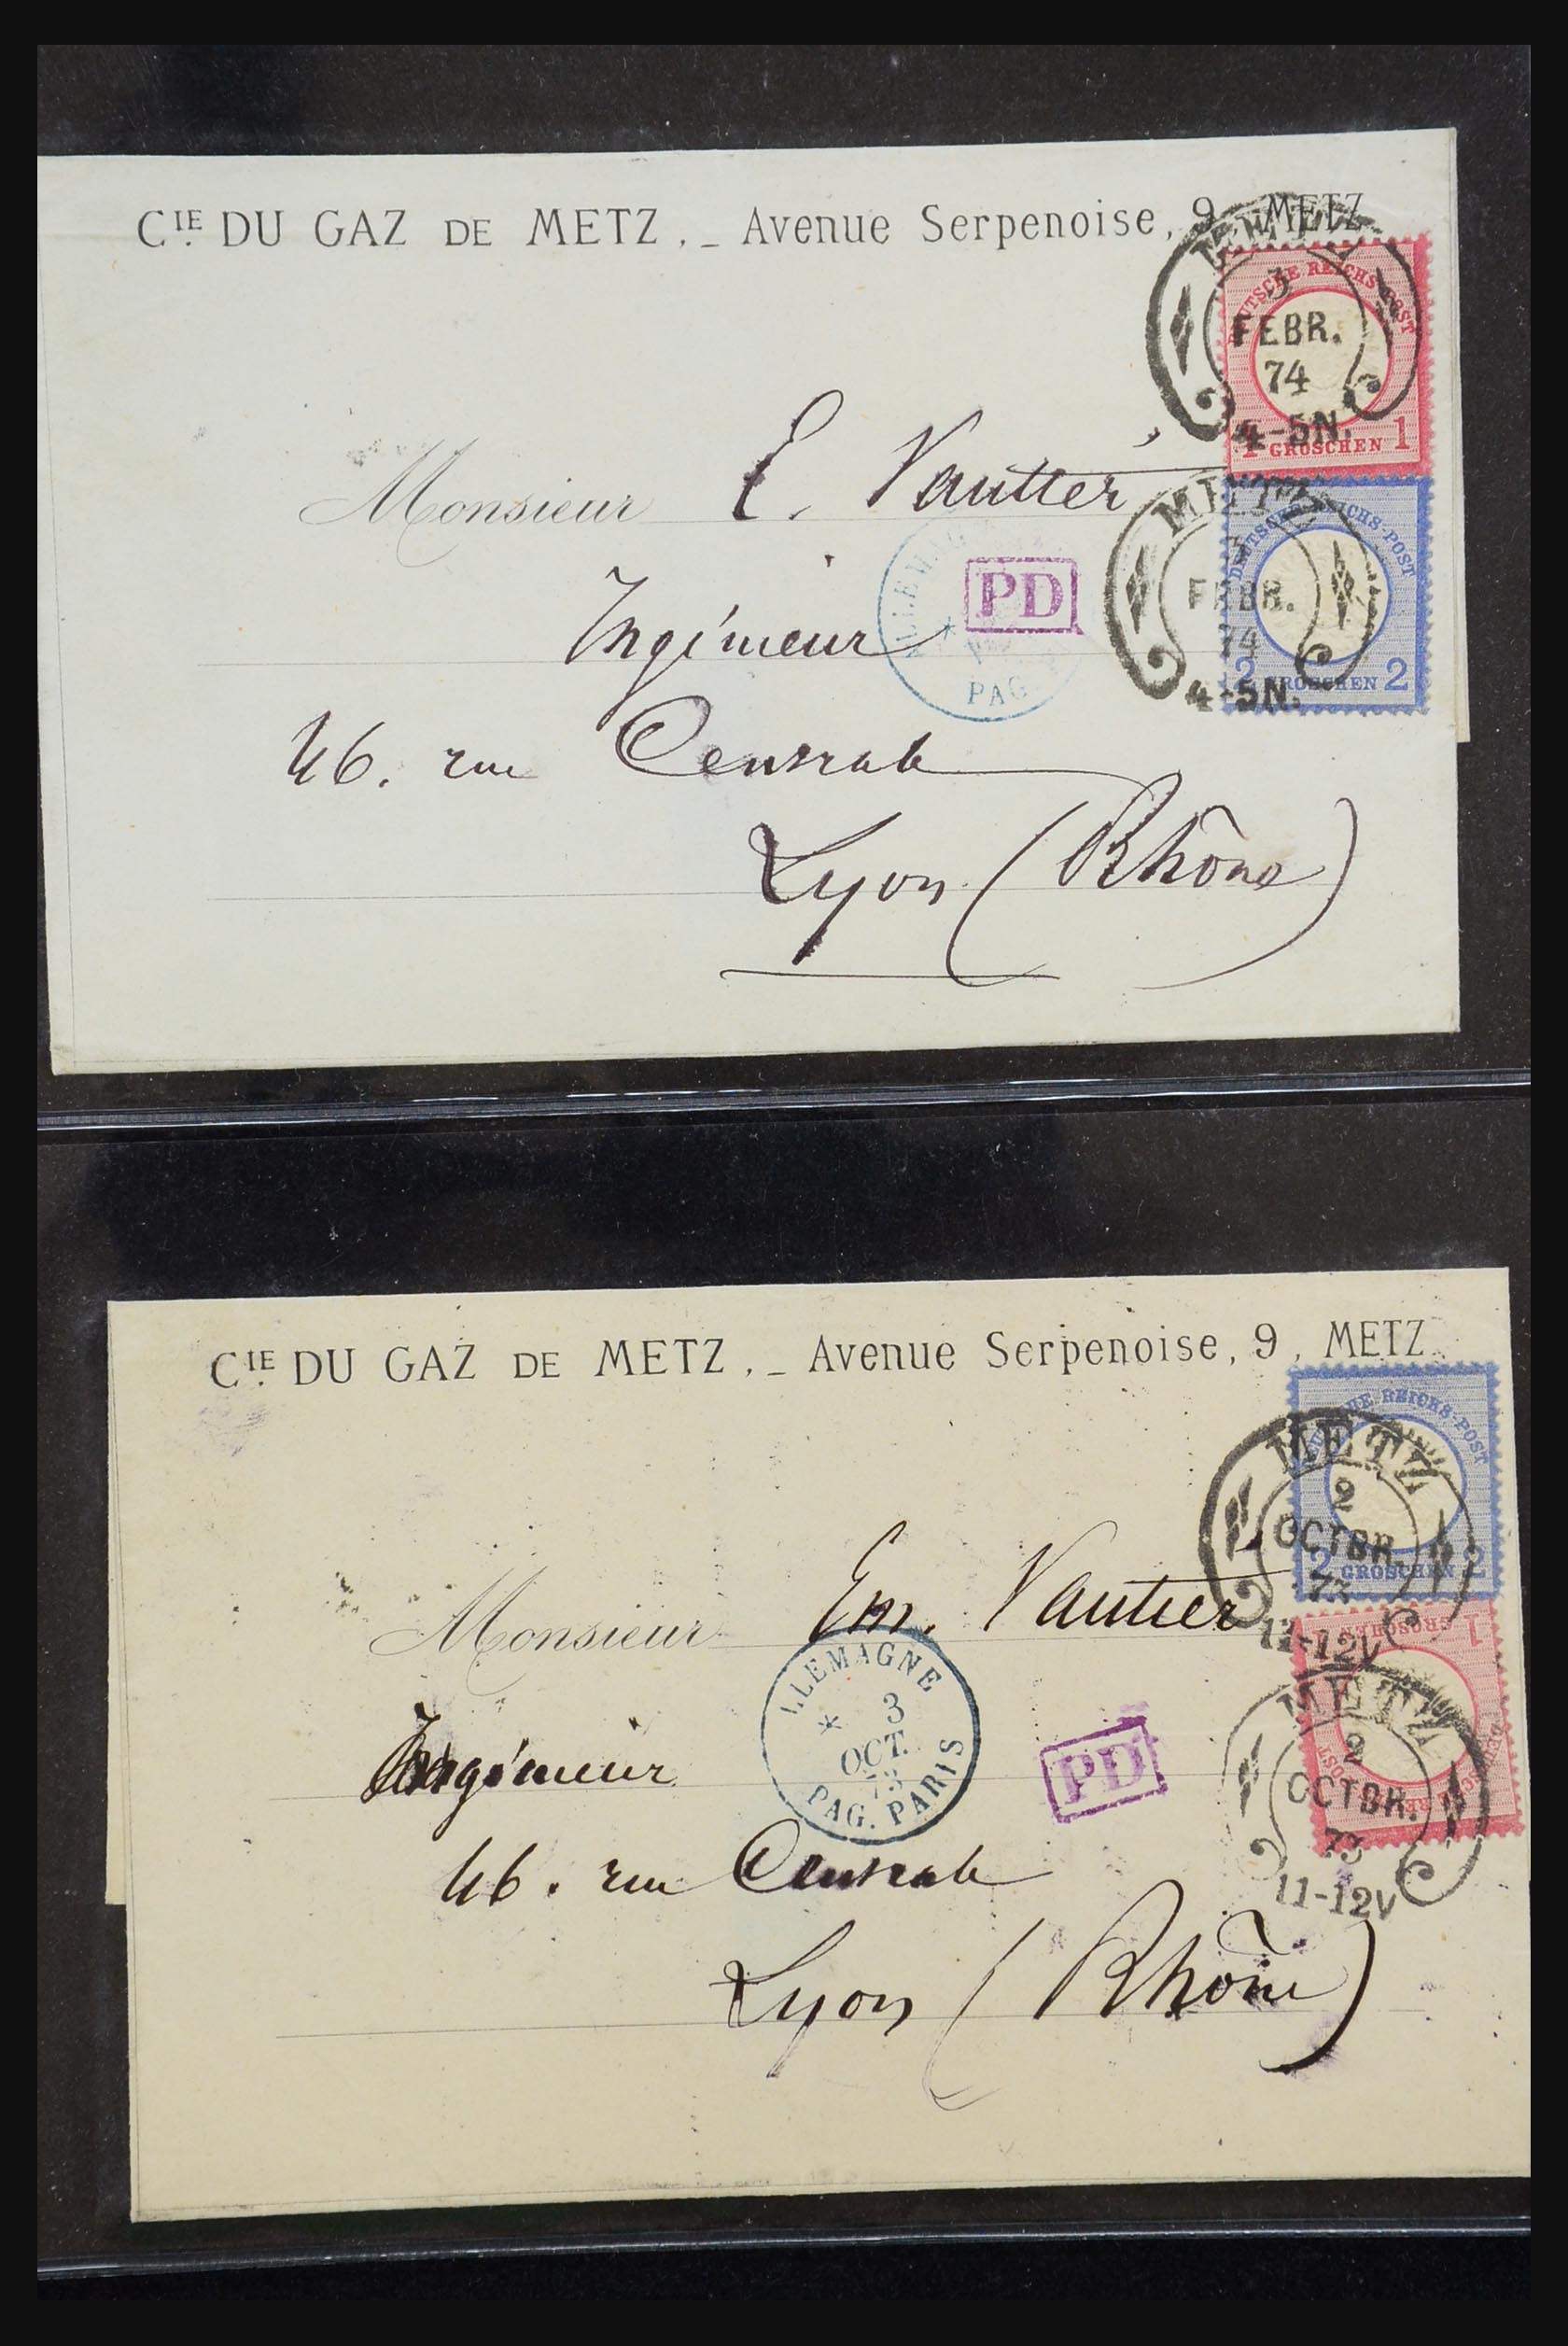 CIE DU GAZ DE METZ. _ Avenue Serpenoise, 9, METZ
METZ
3
FEBR.
74
4-5N.
DEUTSCHE REICHS-POST
1 GROSCHEN 1
Monsieur E. Vautier
METZ
3
FEBR.
74
4-5N.
DEUTSCHE REICHS-POST
2 GROSCHEN 2
PD
PAG.
Ingénieur
46. rue Centrale
Lyon (Rhône)
CIE DU GAZ DE METZ. _ Avenue Serpenoise, 9, METZ
REICHS-POST
2 GROSCHEN 2
METZ
2
OCTBR.
73
11-12V
Monsieur Em. Vautier
GROSCHEN 1
METZ
2
OCTBR.
73
11-12V
ALLEMAGNE
3
OCT.
73
PAG. PARIS
PD
Ingénieur
46. rue Centrale
Lyon (Rhône)